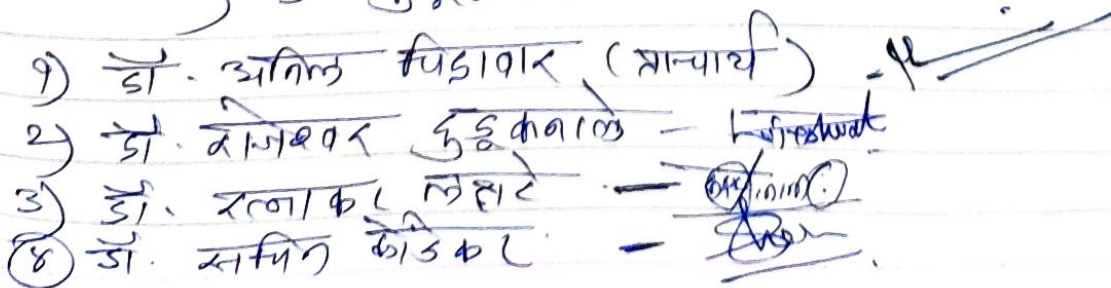 १) डॉ. अनिल चिद्रावार (प्राचार्य) -
२) डॉ. राजेश्वर दुडुकनाले -
३) डॉ. रत्नाकर लहाटे -
४) डॉ. सचिन कोडकर -